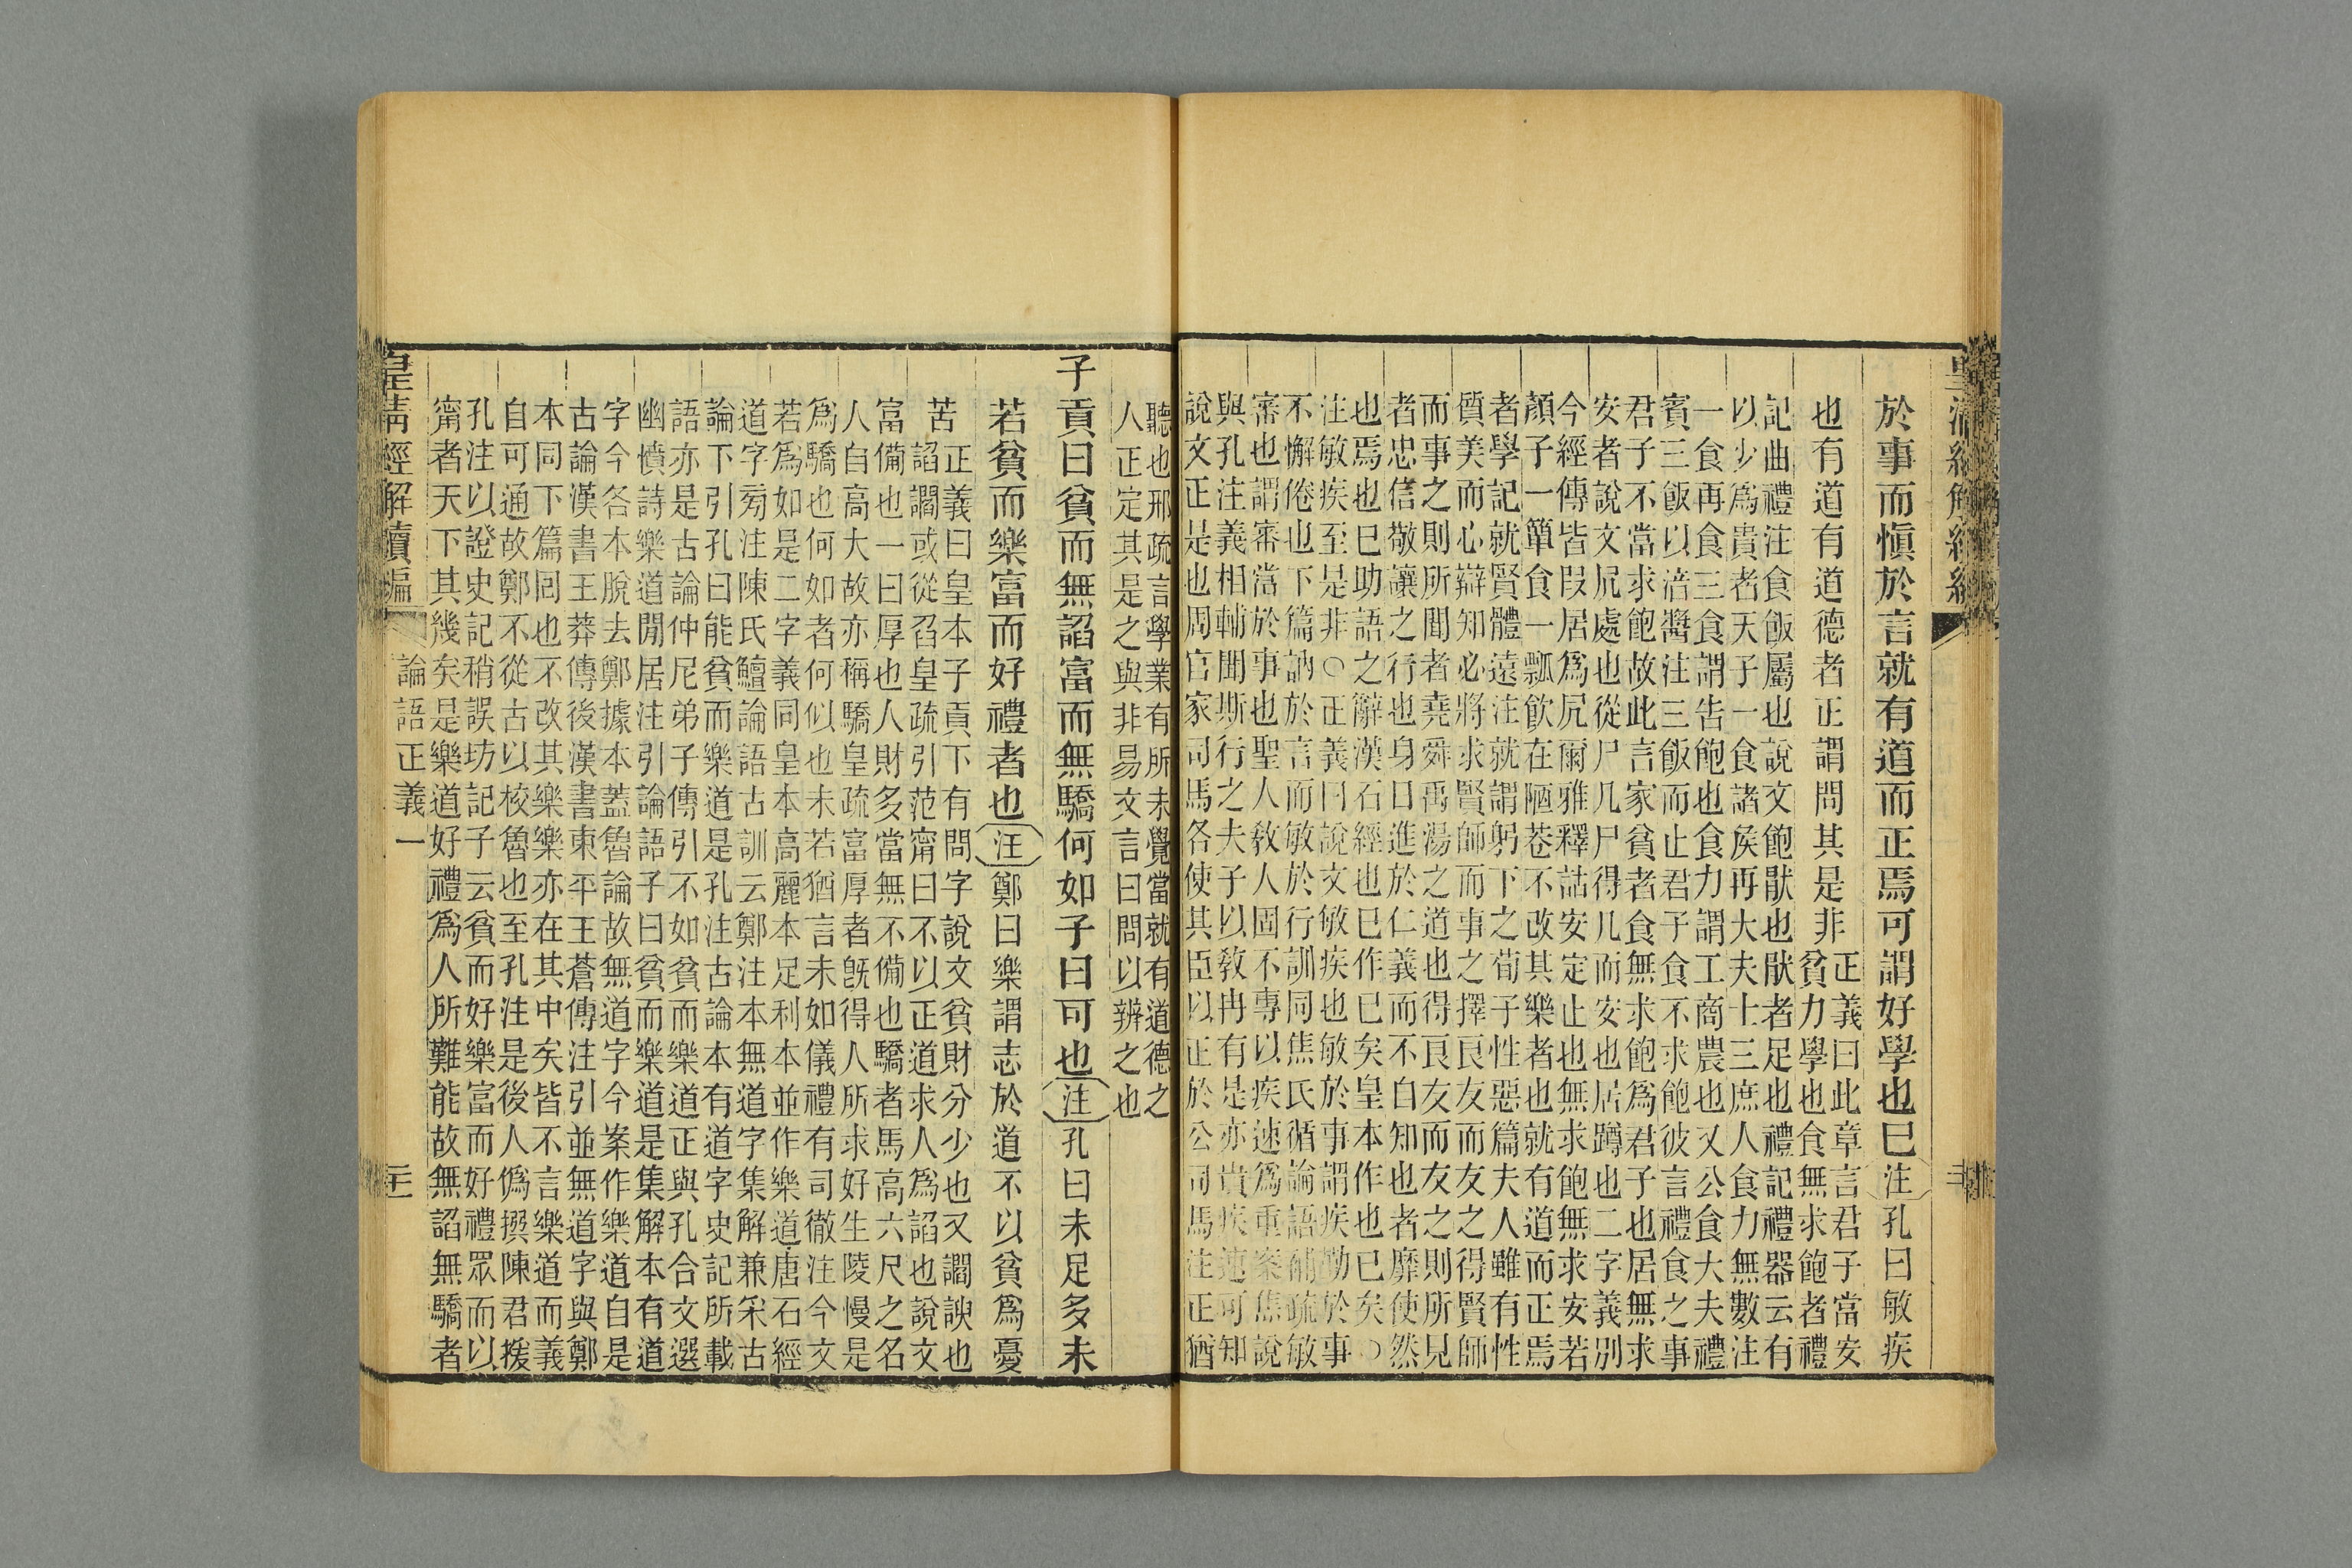 於事而愼於言就有道而正焉可謂好學也已注孔曰敏疾
也有道有道德者正謂問其是非
正義曰此章言君子當安
貧力學也食無求飽者禮
記曲禮注食飯屬也說文飽猒也猒者足也禮記禮器云有
以少爲貴者天子一食諸矦再大夫士三庶人食力無數注
一食再食三食謂告飽也食力謂工商農也又公食大夫禮
賓三飯以湆醬注三飯而止君子食不求飽彼言禮食之事
君子不當求飽故此言家貧者食無求飽爲君子也居無求
安者說文凥處也從尸几尸得几而安也居蹲也二字義別
今經傳皆叚居爲凥爾雅釋詁安定止也無求飽無求安若
顏子一簞食一瓢飮在陋巷不改其樂者也就有道而正焉
者學記就賢體遠注就謂躬下之荀子性惡篇夫人雖有性
質美而心辯知必將求賢師而事之擇良友而友之得賢師
而事之則所聞者堯舜禹湯之道也得良友而友之則所見
者忠信敬讓之行也身日進於仁義而不自知也者靡使然
也焉也已助語之辭漢石經也已作已矣皇本作也已矣○
注敏疾至是非○正義曰說文敏疾也敏於事謂疾勤於事
不懈倦也下篇訥於言而敏於行訓同焦氏循論語補疏敏
審也謂審當於事也聖人敎人固不專以疾速爲重案焦說
與孔注義相輔聞斯行之夫子以敎冉有是亦貴疾速可知
說文正是也周官家司馬各使其臣以正於公司馬注正猶
聽也邢疏言學業有所未覺當就有道德之
人正定其是之與非易文言曰問以辨之也
子貢曰貧而無諂富而無驕何如子曰可也注孔曰未足多未
若貧而樂富而好禮者也注鄭曰樂謂志於道不以貧爲憂
苦
正義曰皇本子貢下有問字說文貧財分少也又讇諛也
諂讇或從臽皇疏引范甯曰不以正道求人爲諂也說文
富備也一曰厚也人財多當無不備也驕者馬高六尺之名
人自高大故亦稱驕皇疏富厚者旣得人所求好生陵慢是
爲驕也何如者何似也未若猶言未如儀禮有司徹注今文
若爲如是二字義同皇本高麗本足利本並作樂道唐石經
道字旁注陳氏鱣論語古訓云鄭注本無道字集解兼采古
論下引孔曰能貧而樂道是孔注古論本有道字史記所載
語亦是古論仲尼弟子傳引不如貧而樂道正與孔合文選
幽憤詩樂道閒居注引論語子曰貧而樂道是集解本有道
字今各本脫去鄭據本蓋魯論故無道字今案作樂道自是
古論漢書王莽傳後漢書東平王蒼傳注引並無道字與鄭
本同下篇回也不改其樂樂亦在其中矣皆不言樂道而義
自可通故鄭不從古以校魯也至孔注是後人僞撰陳君援
孔注以證史記稍誤坊記子云貧而好樂富而好禮眾而以
甯者天下其幾矣是樂道好禮爲人所難能故無諂無驕者
皇清經解續編 論語正義一